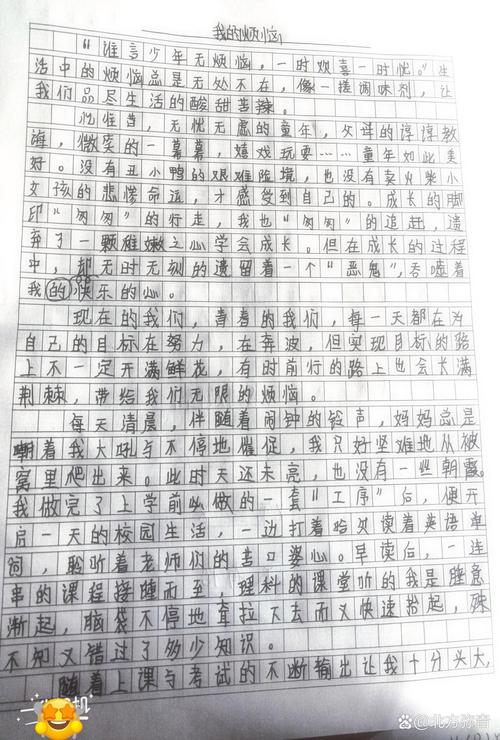 我的烦恼
“谁言少年无烦恼，一时欢喜一时忧。”生
活中的烦恼总是无处不在，像一搓调味剂，让
我们品尽生活的酸甜苦辣。
忆往昔，无忧无虑的童年，父母的谆谆教
海，微笑的一幕幕，嬉戏玩耍……童年如此美
好。没有丑小鸭的艰难险境，也没有卖火柴小
女孩的悲惨命运，才感受到自己的。成长的脚
印“匆匆”的行走，我也“匆匆”的追赶，遗
弃了一颗稚嫩之心学会成长。但在成长的过程
中，却无时无刻的遗留着一个“恶鬼”，吞噬着
我的快乐的心。
现在的我们，青春的我们，每一天都在为
自己的目标在努力，在奔波，但实现目标的路
上不一定开满鲜花，有时前行的路上也会长满
荆棘，带给我们无限的烦恼。
每天清晨，伴随着闹钟的铃声，妈妈总是
朝着我大吼与不停地催促，我只好坚难地从被
窝里爬出来。此时天还未亮，也没有一些朝霞。
我做完了上学前必做的一套“工序”后，便开
启一天的校园生活，一边打着哈欠读着英语单
词，聆听着老师们的苦口婆心。早读后，一连
串的课程接踵而至，理科的课堂听的我是睡意
渐起，脑袋不停地耷拉下去而又快速抬起，殊
不知又错过了多少知识。
随着上课与考试的不断输出让我十分头大，